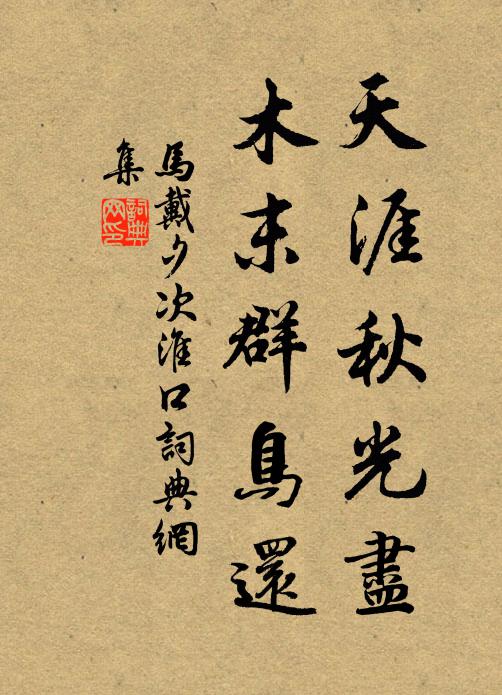 天涯秋光盡
木末群鳥還
馬戴夕次淮口詞典網
集
詞典
网印